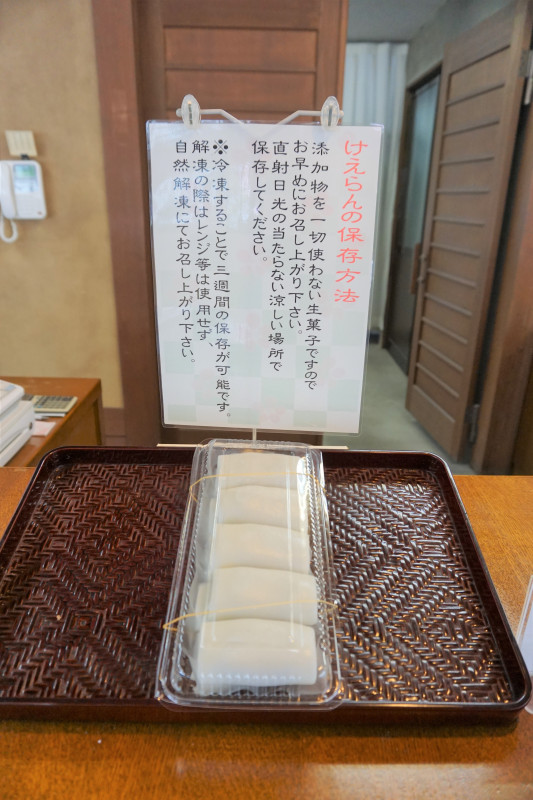 けえらんの保存方法
添加物を一切使わない生菓子ですので
お早めにお召し上がり下さい。
直射日光の当たらない涼しい場所で
保存してください。
※冷凍することで三週間の保存が可能です。
解凍の際はレンジ等は使用せず、
自然解凍にてお召し上がり下さい。